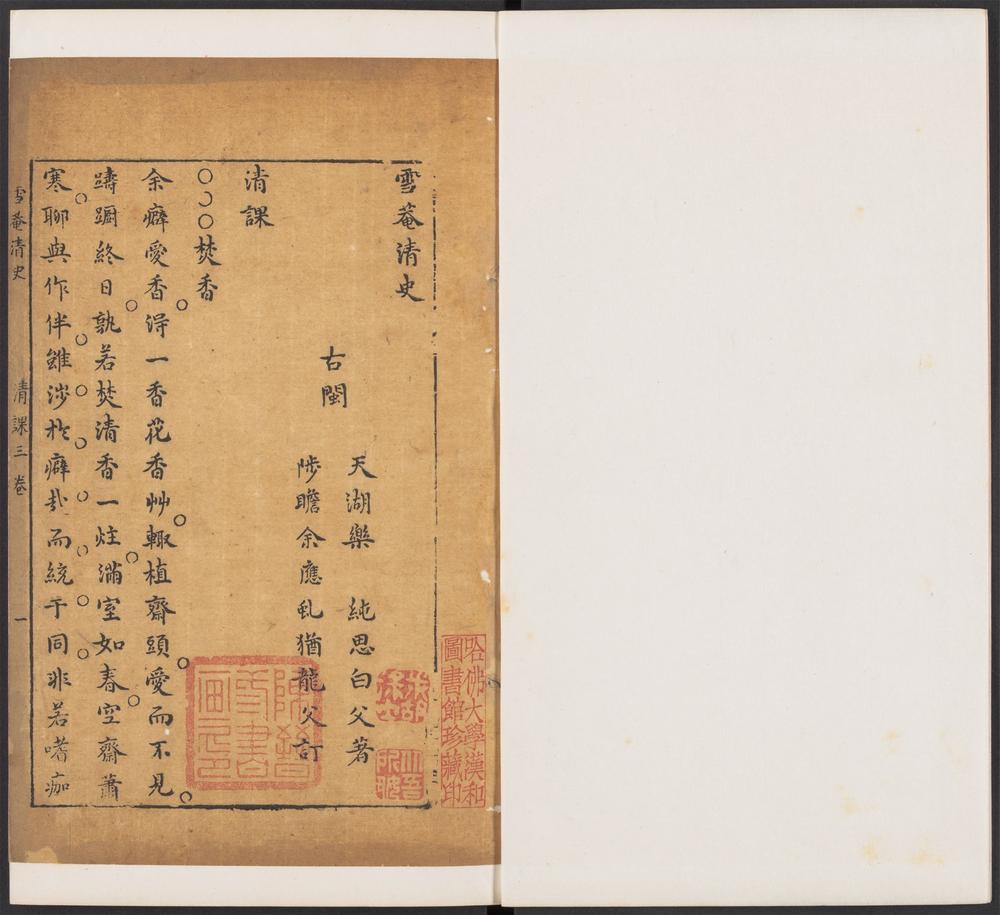 雪菴清史
古閩
天湖樂純思白父著
陟瞻余應虬猶龍父訂
清課
○○○焚香
余癖愛香淂一香花香艸輙植齋頭愛而不見
躊蹰終日孰若焚清香一炷滿室如春空齋蕭
寒聊與作伴雖涉於癖㢤而統于同非若嗜痂
雪菴清史 清課三卷 一
哈佛大學漢和
圖書館珍藏印